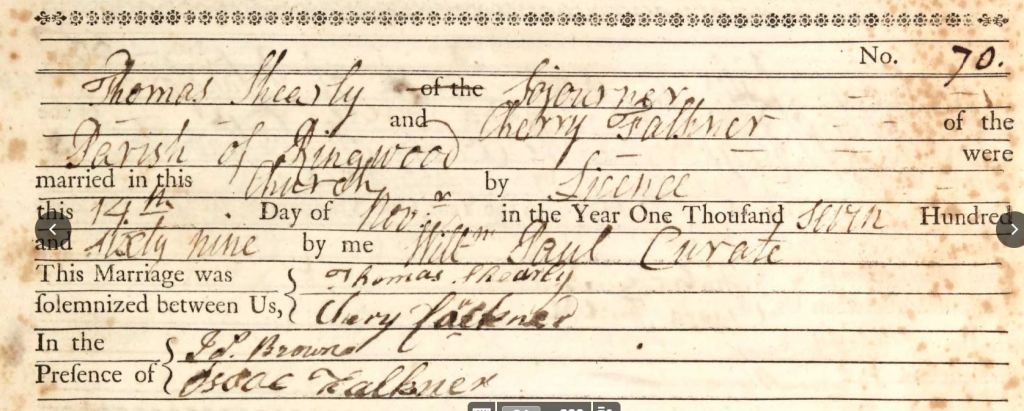 No. 70.
Thomas Shearly of the Sojourner
and Cherry Falkner of the
Parish of Ringwood were
married in this Church by Licence
this 14th Day of Novr in the Year One Thouſand Seven Hundred
and sixty nine by me Willm Paul Curate
This Marriage was Thomas Shearly
ſolemnized between Us, Chery Falkner
In the Jos. Browne
Presence of Isaac Falkner